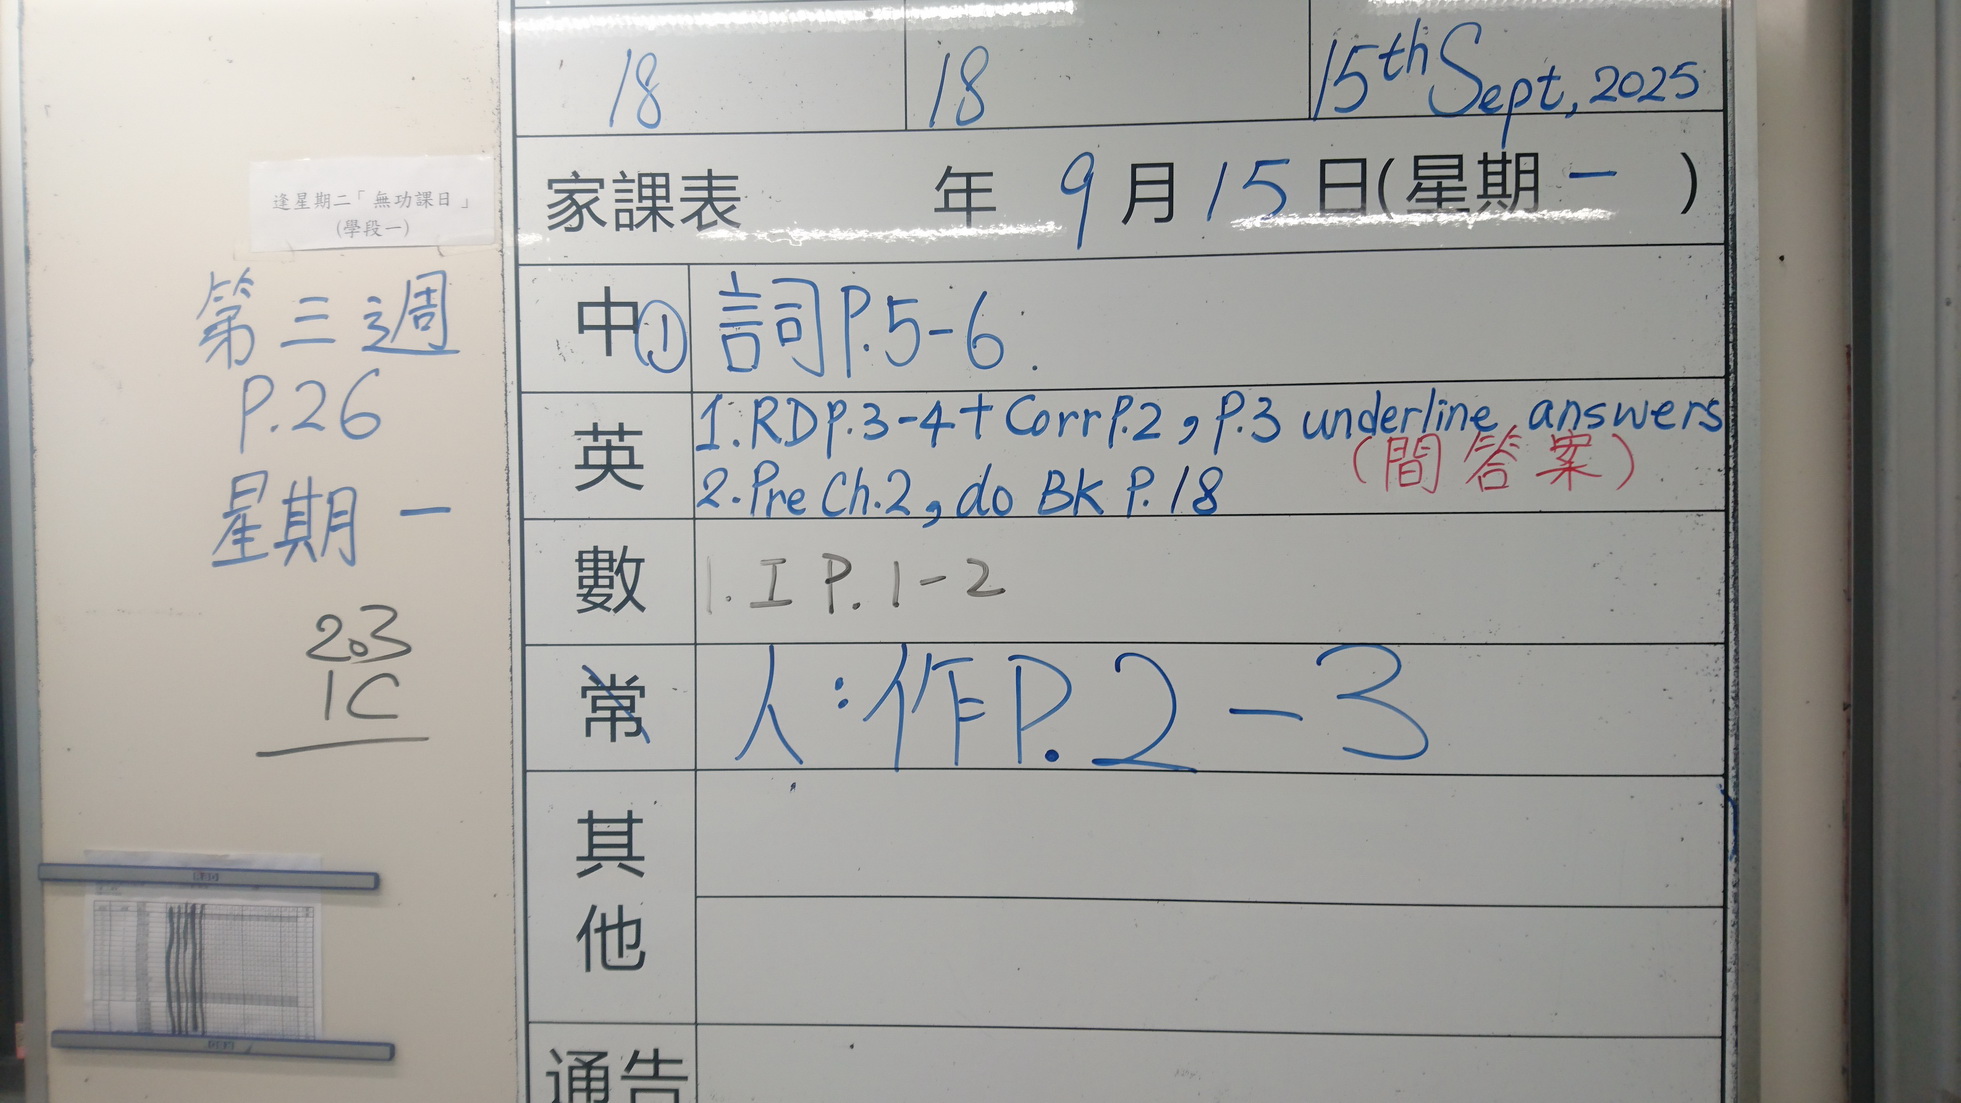 18 18 15th Sept, 2025
家課表 年 9 月 15 日(星期 一 )
逢星期二「無功課日」
(學段一)
第三週
P.26
星期一
2.3
1C
中 ① 詞 P.5-6.
英 1. RD P.3-4 + Corr P.2, P.3 underline answers
(間答案)
2. Pre Ch.2, do BK P.18
數 1. I P.1-2
常 人:作 P.2-3
其他
通告